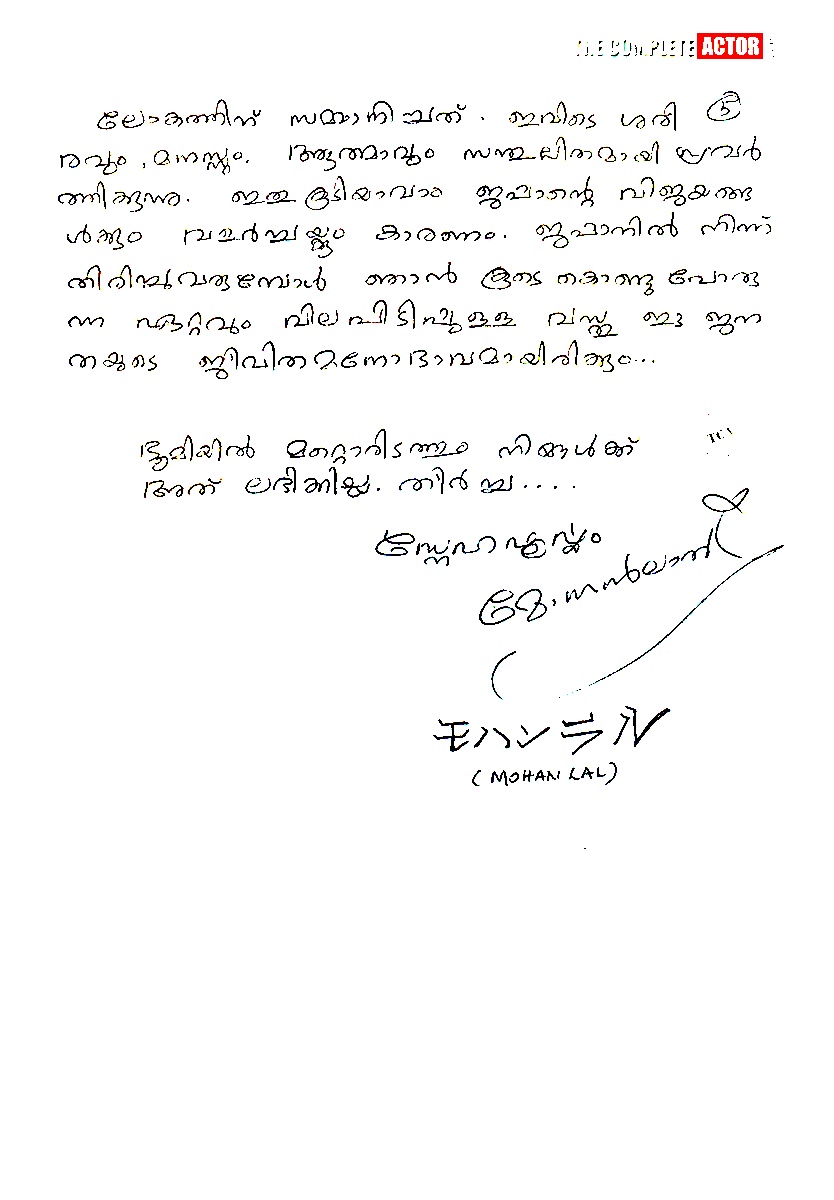 THE COMPLETE ACTOR
ലോകത്തിന് സമ്മാനിച്ചത്. ഇവിടെ ശരീ
5
രവും, മനസ്സും. ആത്മാവും സന്തുലിതമായി പ്രവർ
ത്തിക്കുന്നു. ഇതു കൂടിയാവാം ജപ്പാന്റെ വിജയങ്ങ
ൾക്കും വളർച്ചയ്ക്കും കാരണം. ജപ്പാനിൽ നിന്ന്
തിരിച്ചുവരുമ്പോൾ ഞാൻ കൂടെ കൊണ്ടു പോരു
ന്ന ഏറ്റവും വിലപിടിപ്പുള്ള വസ്തു ഈ ജന
തയുടെ ജീവിതമനോഭാവമായിരിക്കും...
ഭൂമിയിൽ മറ്റൊരിടത്തും നിങ്ങൾക്ക്
TCA
അത് ലഭിക്കില്ല. തീർച്ച....
സ്നേഹപൂർവ്വം
മോഹൻലാൽ
モハンラル
(MOHAN LAL)